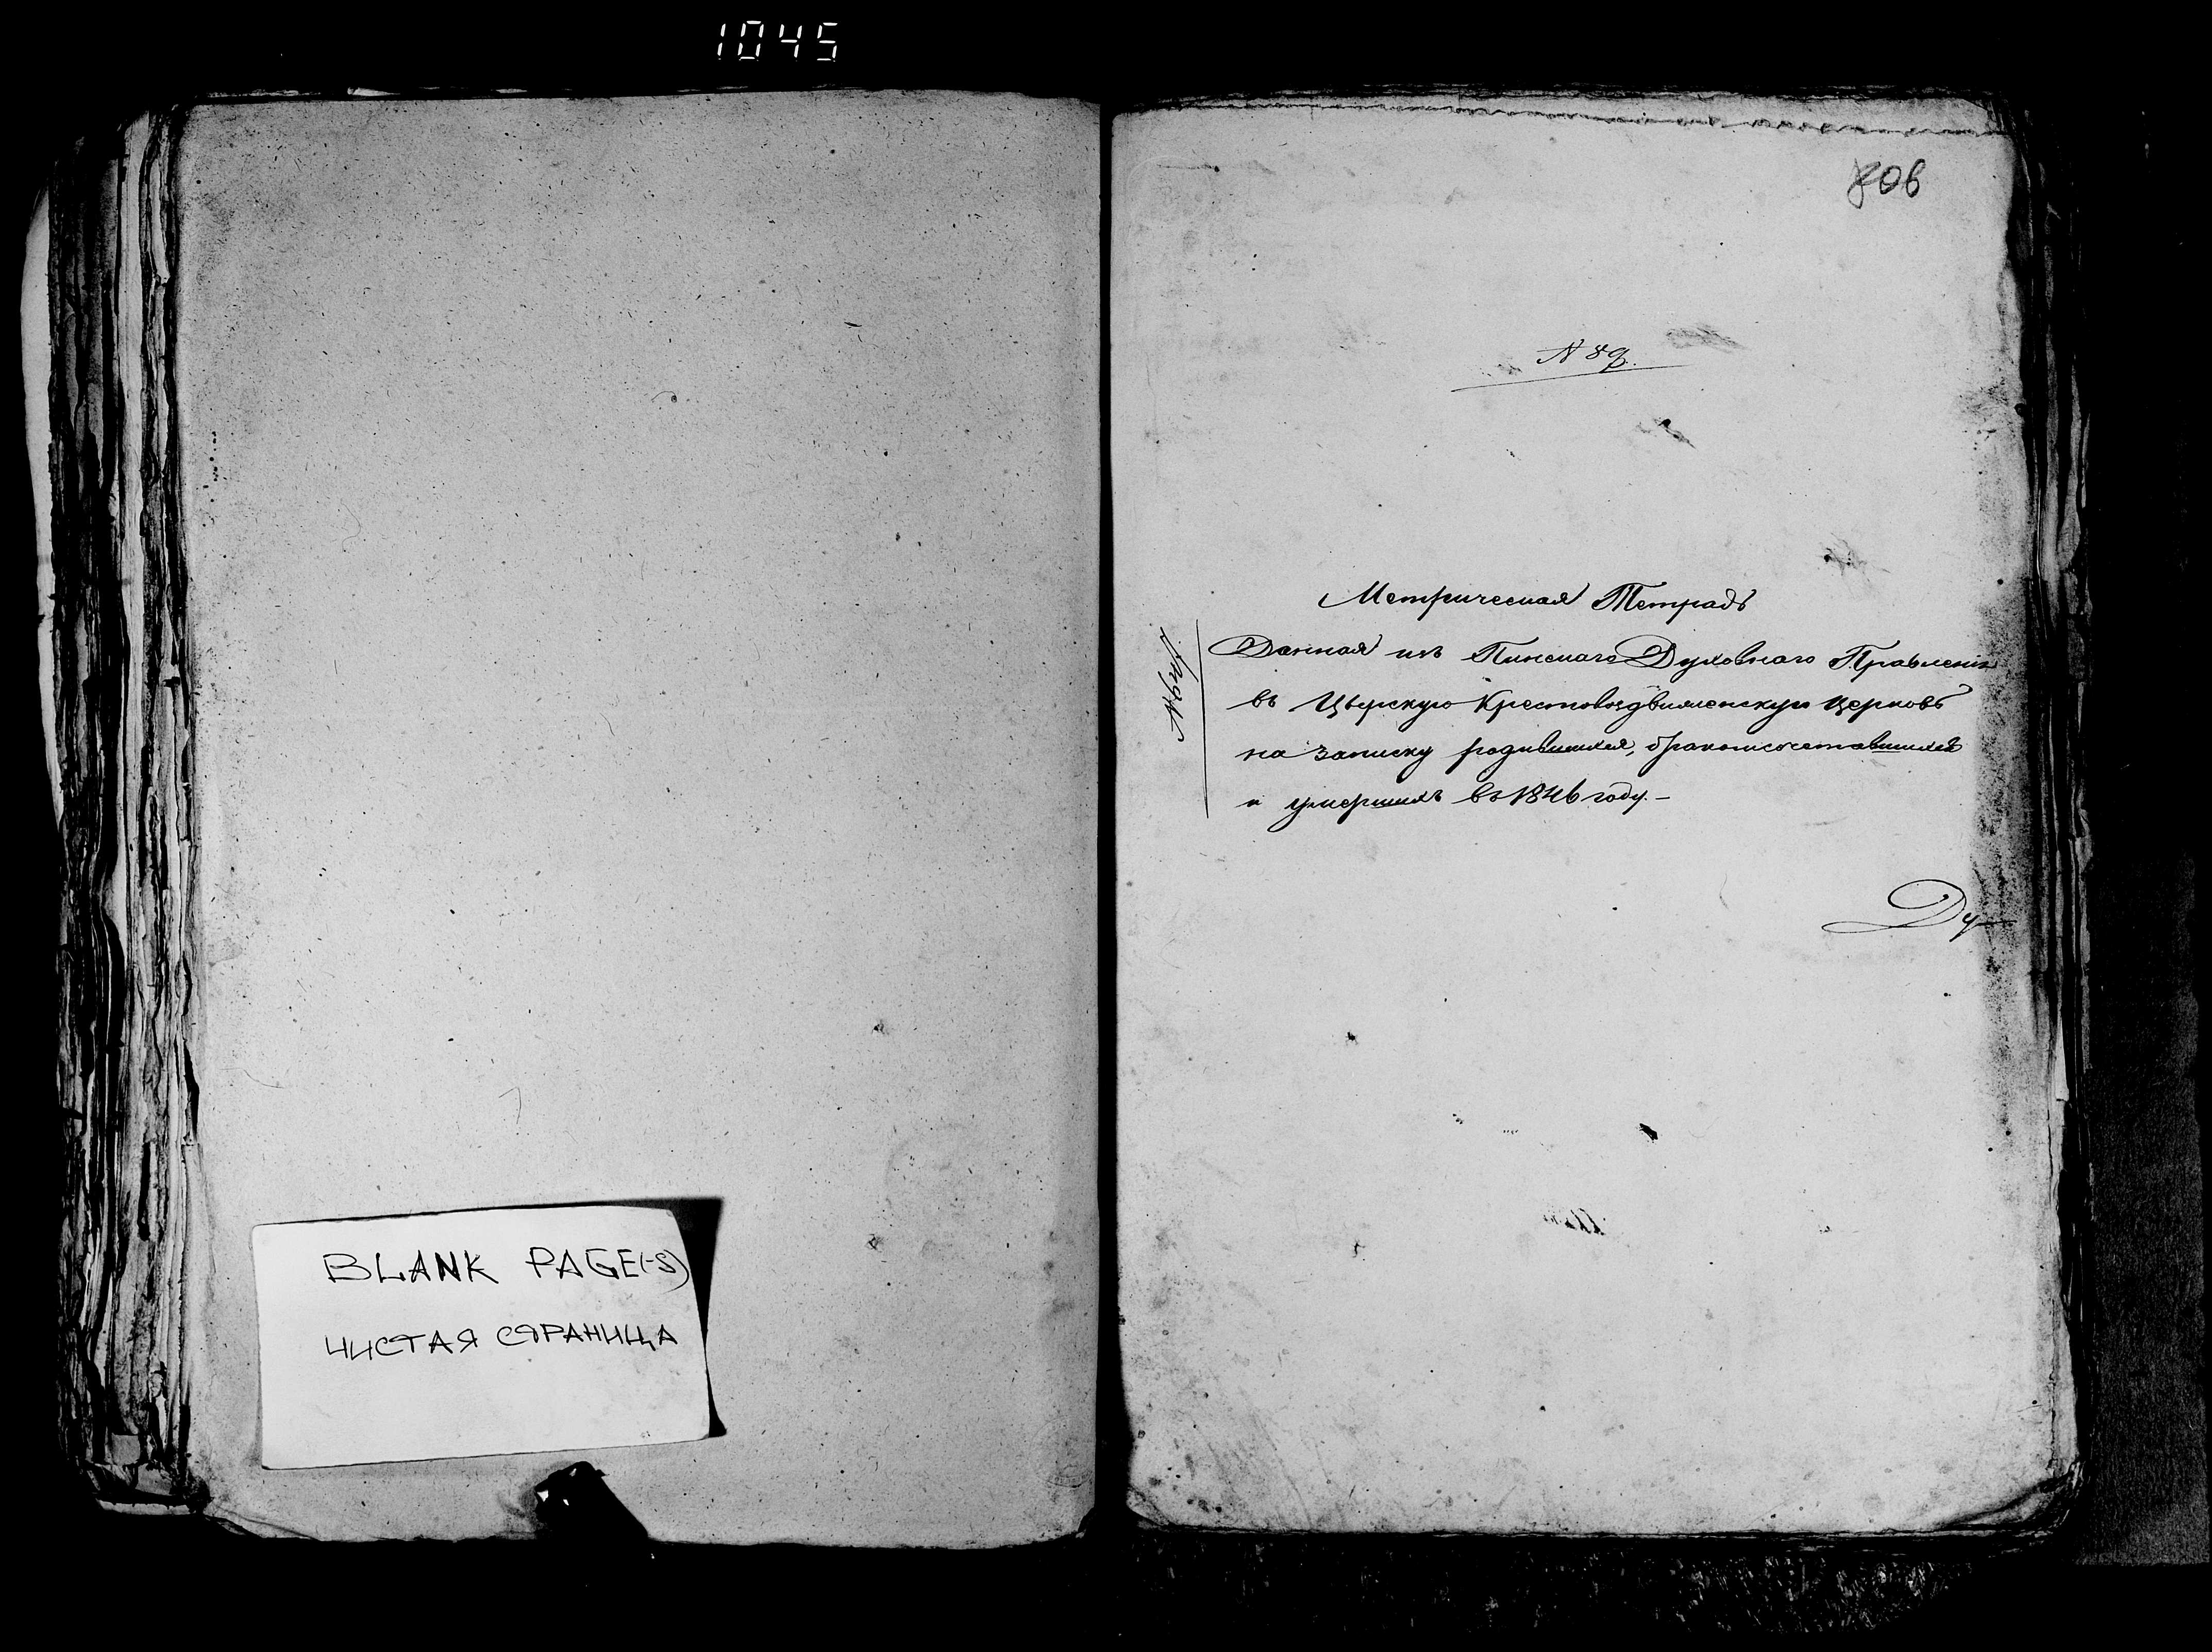 1045
BLANK PAGE(-S)
ЧИСТАЯ СТРАНИЦА
806
N 89.
Метрическая Тетрадь
Данная изъ Пинскаго Духовнаго Правленія
въ Цѣрскую Крестовоздвиженскую Церковь
на записку родившихся, бракомсочетавшихся
и умершихъ въ 1846 году. –